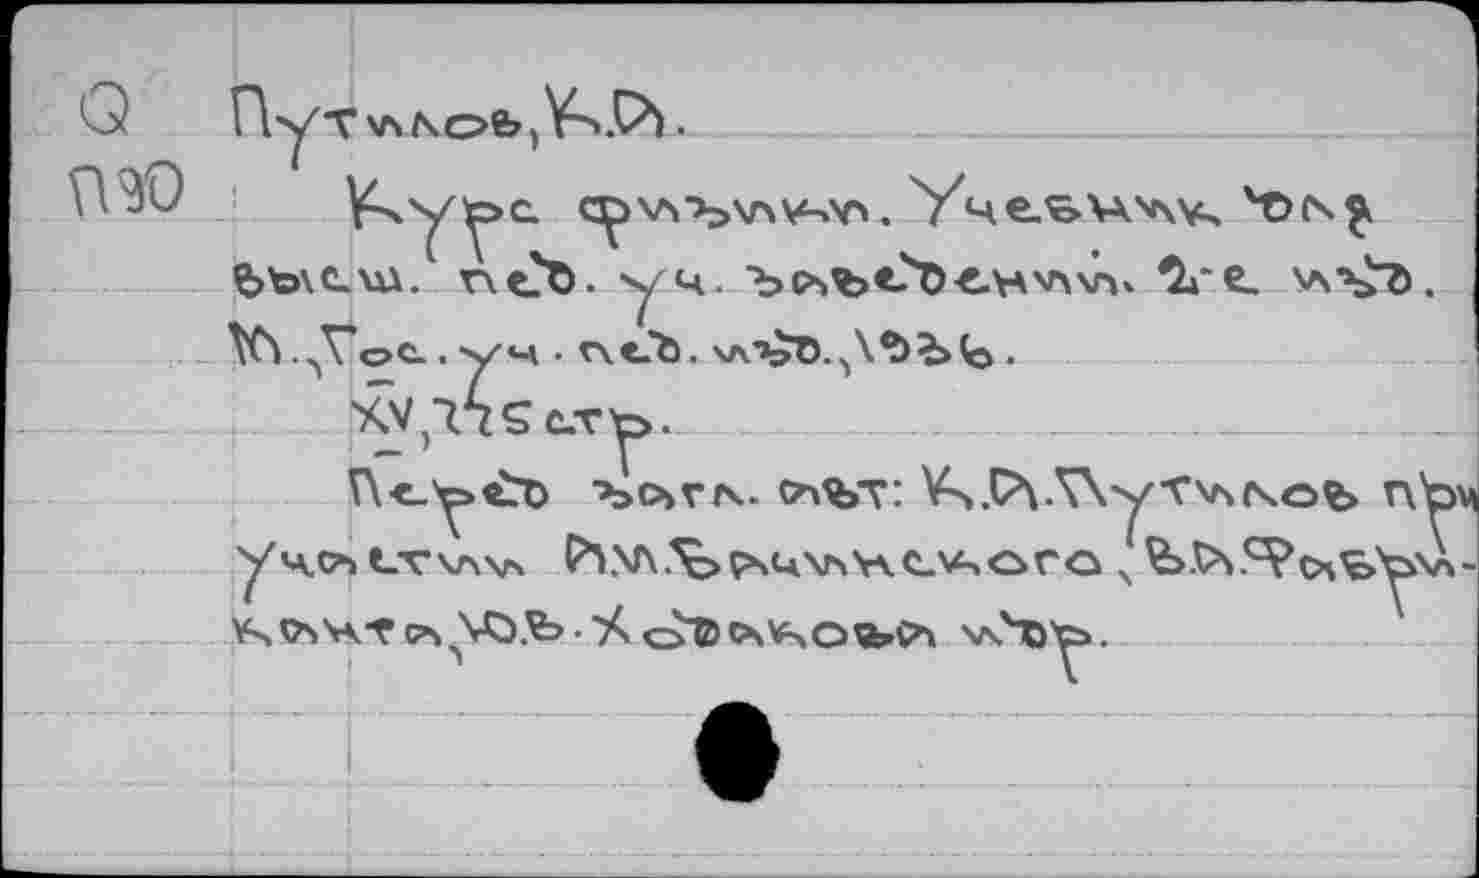 Q Путилов, К.А.
П90 Курс физики. Учебник для
высш. пед. уч. заведений. 2-е изд.
М., Гос. уч. пед. изд., 1936.
XV, стр.
Перед загл. авт: К.А.Путилов при
участии А.И.Бачинского, В.А.Фабри-
канта, Ю.В.Ходакова и др.